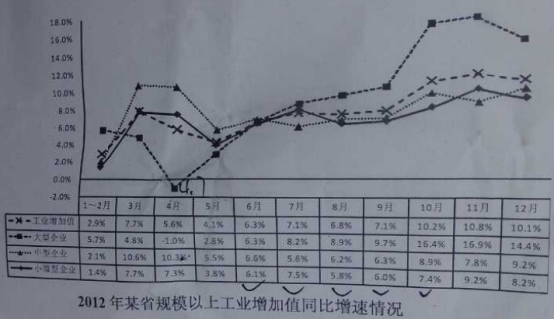 18.0%
16.0%
14.0%
12.0%
10.0%
8.0%
6.0%
4.0%
2.0%
0.0%
-2.0%
1～2月 3月 4月 5月 6月 7月 8月 9月 10月 11月 12月
工业增加值 2.9% 7.7% 5.6% 4.1% 6.3% 7.1% 6.8% 7.1% 10.2% 10.8% 10.1%
大型企业 5.7% 4.8% -1.0% 2.8% 6.3% 8.2% 8.9% 9.7% 16.4% 16.9% 14.4%
中型企业 2.1% 10.6% 10.3% 5.5% 6.6% 5.6% 6.2% 6.3% 8.9% 7.8% 9.2%
小微型企业 1.4% 7.7% 7.3% 3.8% 6.1% 7.5% 5.8% 6.0% 7.4% 9.2% 8.2%
2012年某省规模以上工业增加值同比增速情况